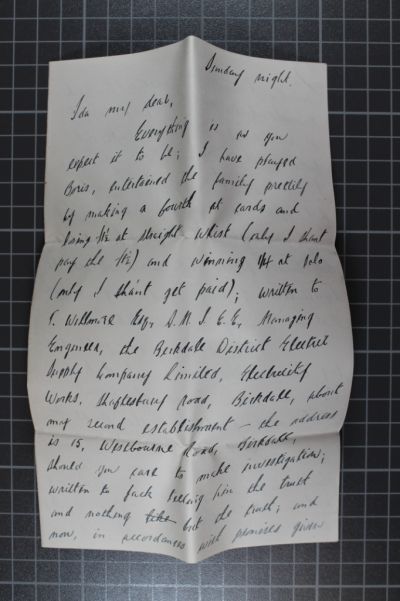 Sunday night.
Ida my dear,
Everything is as you
expect it to be; I have played
Boris, entertained the family prettily
by making a fourth at cards and
losing at straight whist (only I shant
pay the) and winning at solo
(only I shan't get paid); written to
T. Willmore Esq., A.M.I.E.E., Managing
Engineer, the Birkdale District Electric
Supply Company Limited, Electricity
Works, Shaftesbury Road, Birkdale, about
my second establishment – the address
is 15, Westbourne Road, Birkdale,
should you care to make investigation;
written to Jack telling him the truth
and nothing but the truth; and
now, in accordance with promises given